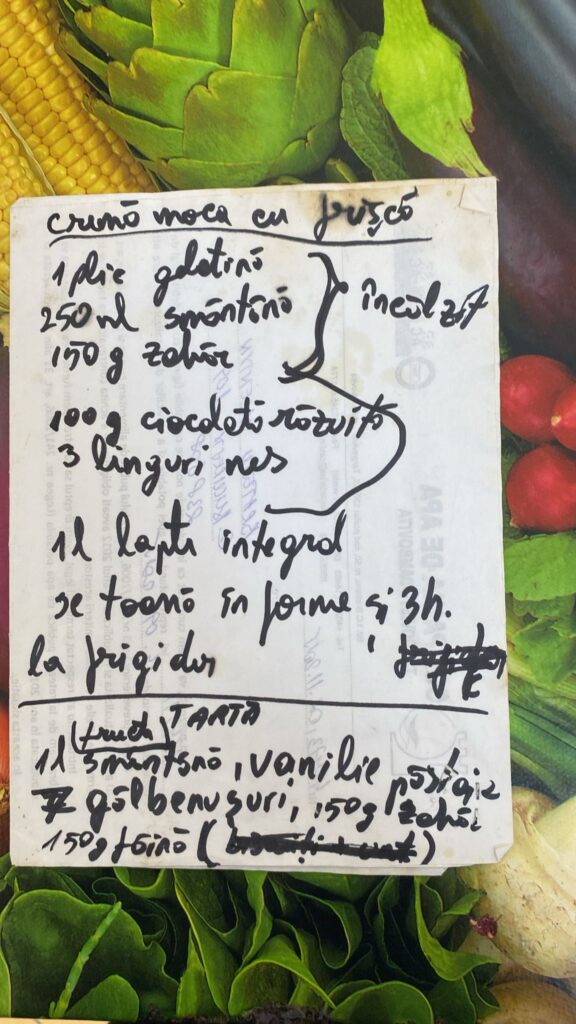 cremă moca cu frișcă
1 plic gelatină
250 ml smântână
încălzit
150 g zahăr
100 g ciocolată răzuită
3 linguri nes
1l lapte integral
se toarnă în forme și 3h.
la frigider
TARTĂ
(fruct)
1l smântână, vanilie păstaie
7 gălbenușuri, 150g zahăr
150g făină (